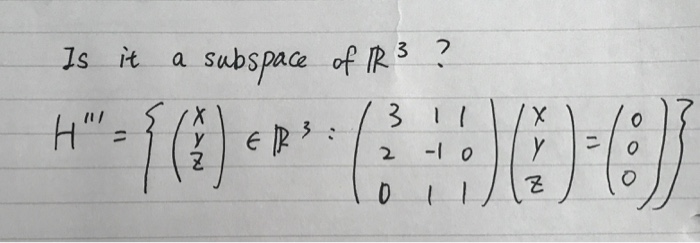 Is it a subspace of ℝ³ ?
H''' = { (x y z) ∈ ℝ³ : (3 1 1 2 -1 0 0 1 1) (x y z) = (0 0 0) }